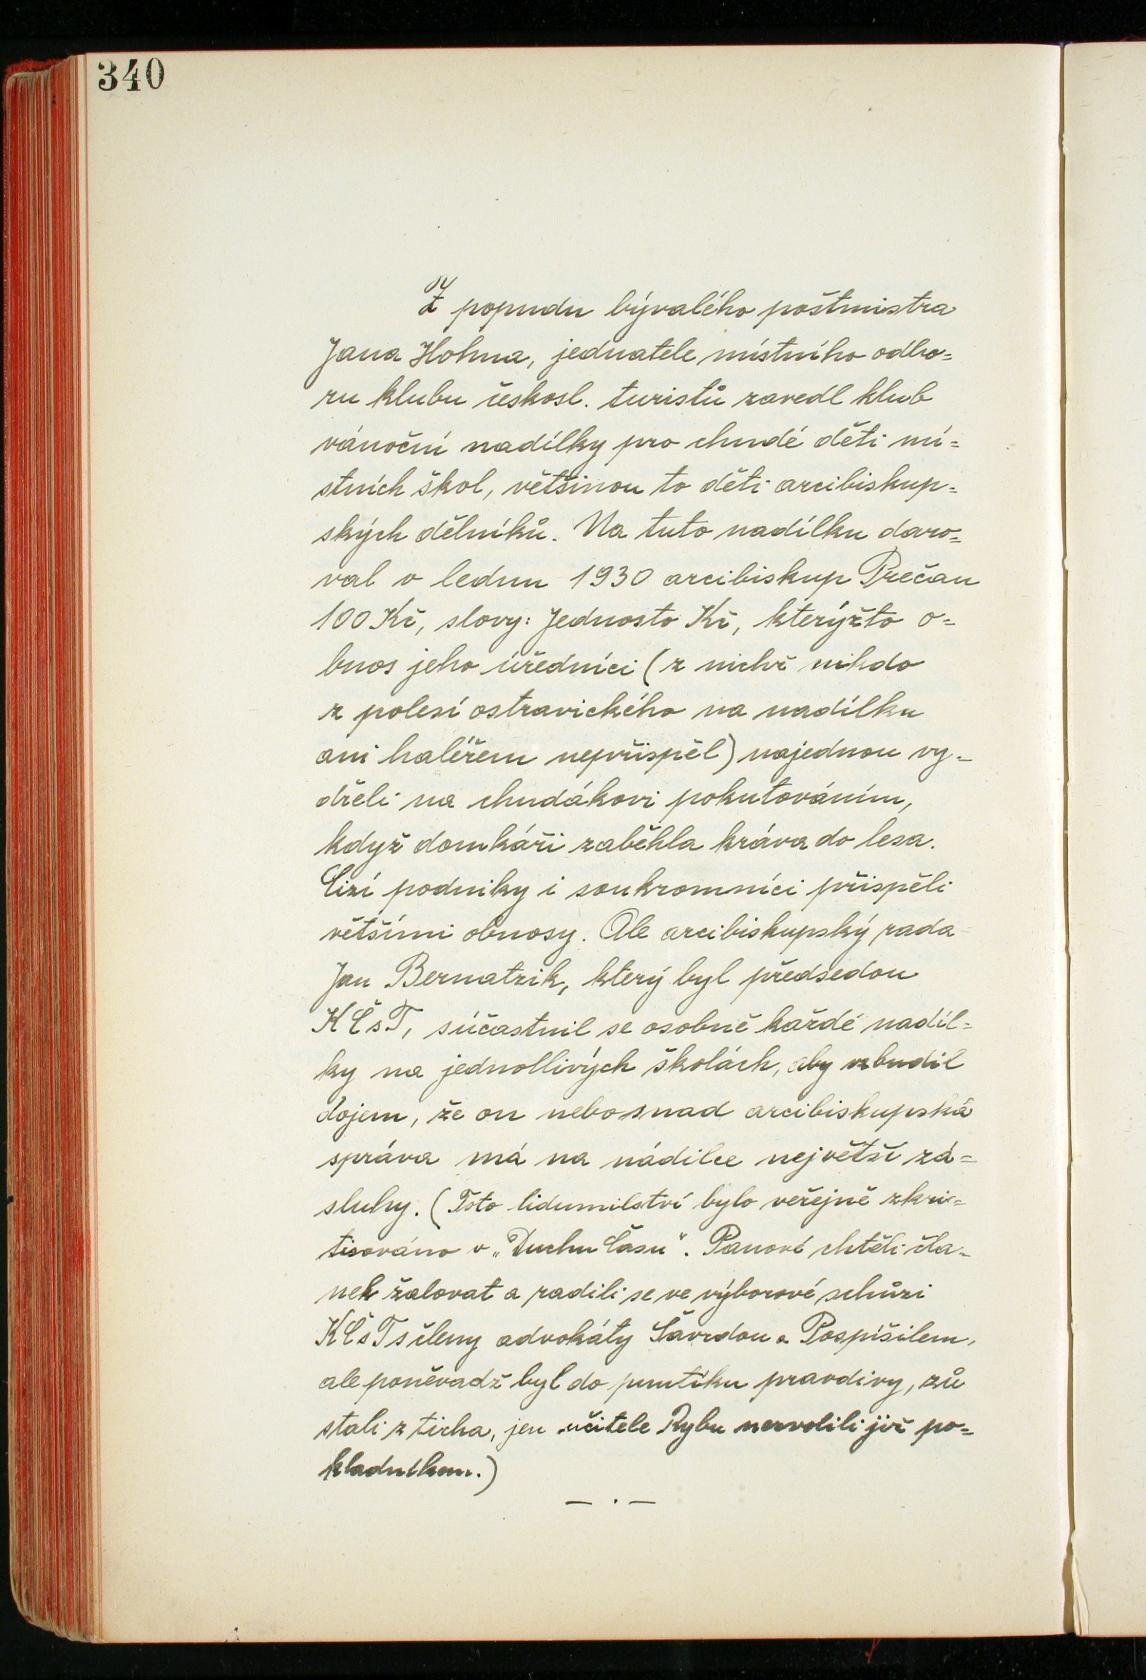 340
Z popudu bývalého poštmistra
Jana Hohna, jednatele místního odbo=
ru klubu českosl. turistů zavedl klub
vánoční nadílky pro chudé děti mí=
stních škol, většinou to děti arcibiskup=
ských dělníků. Na tuto nadílku daro=
val v lednu 1930 arcibiskup Prečan
100 Kč, slovy: Jednosto Kč, kterýžto o=
bnos jeho úředníci (z nichž nikdo
z polesí ostravického na nadílku
ani haléřem nepřispěl) najednou vy=
dřeli na chudákovi pokutováním,
když domkáři zaběhla kráva do lesa.
Cizí podniky i soukromníci přispěli
většími obnosy. Ale arcibiskupský rada
Jan Bernatzik, který byl předsedou
KČsT, súčastnil se osobně každé nadíl=
ky na jednotlivých školách, aby vzbudil
dojem, že on nebo snad arcibiskupská
správa má na nádilce největší zá=
sluhy. (Toto lidumilství bylo veřejně zkri=
tisováno v „Duchu Času". Panové chtěli člá=
nek žalovat a radili se ve výborové schůzi
KČsT s členy advokáty Čavrdou a Pospíšilem,
ale poněvadž byl do puntíku pravdivý, zů
stali z ticha, jen učitele Rybu nezvolili již po=
kladníkem.)
— . —